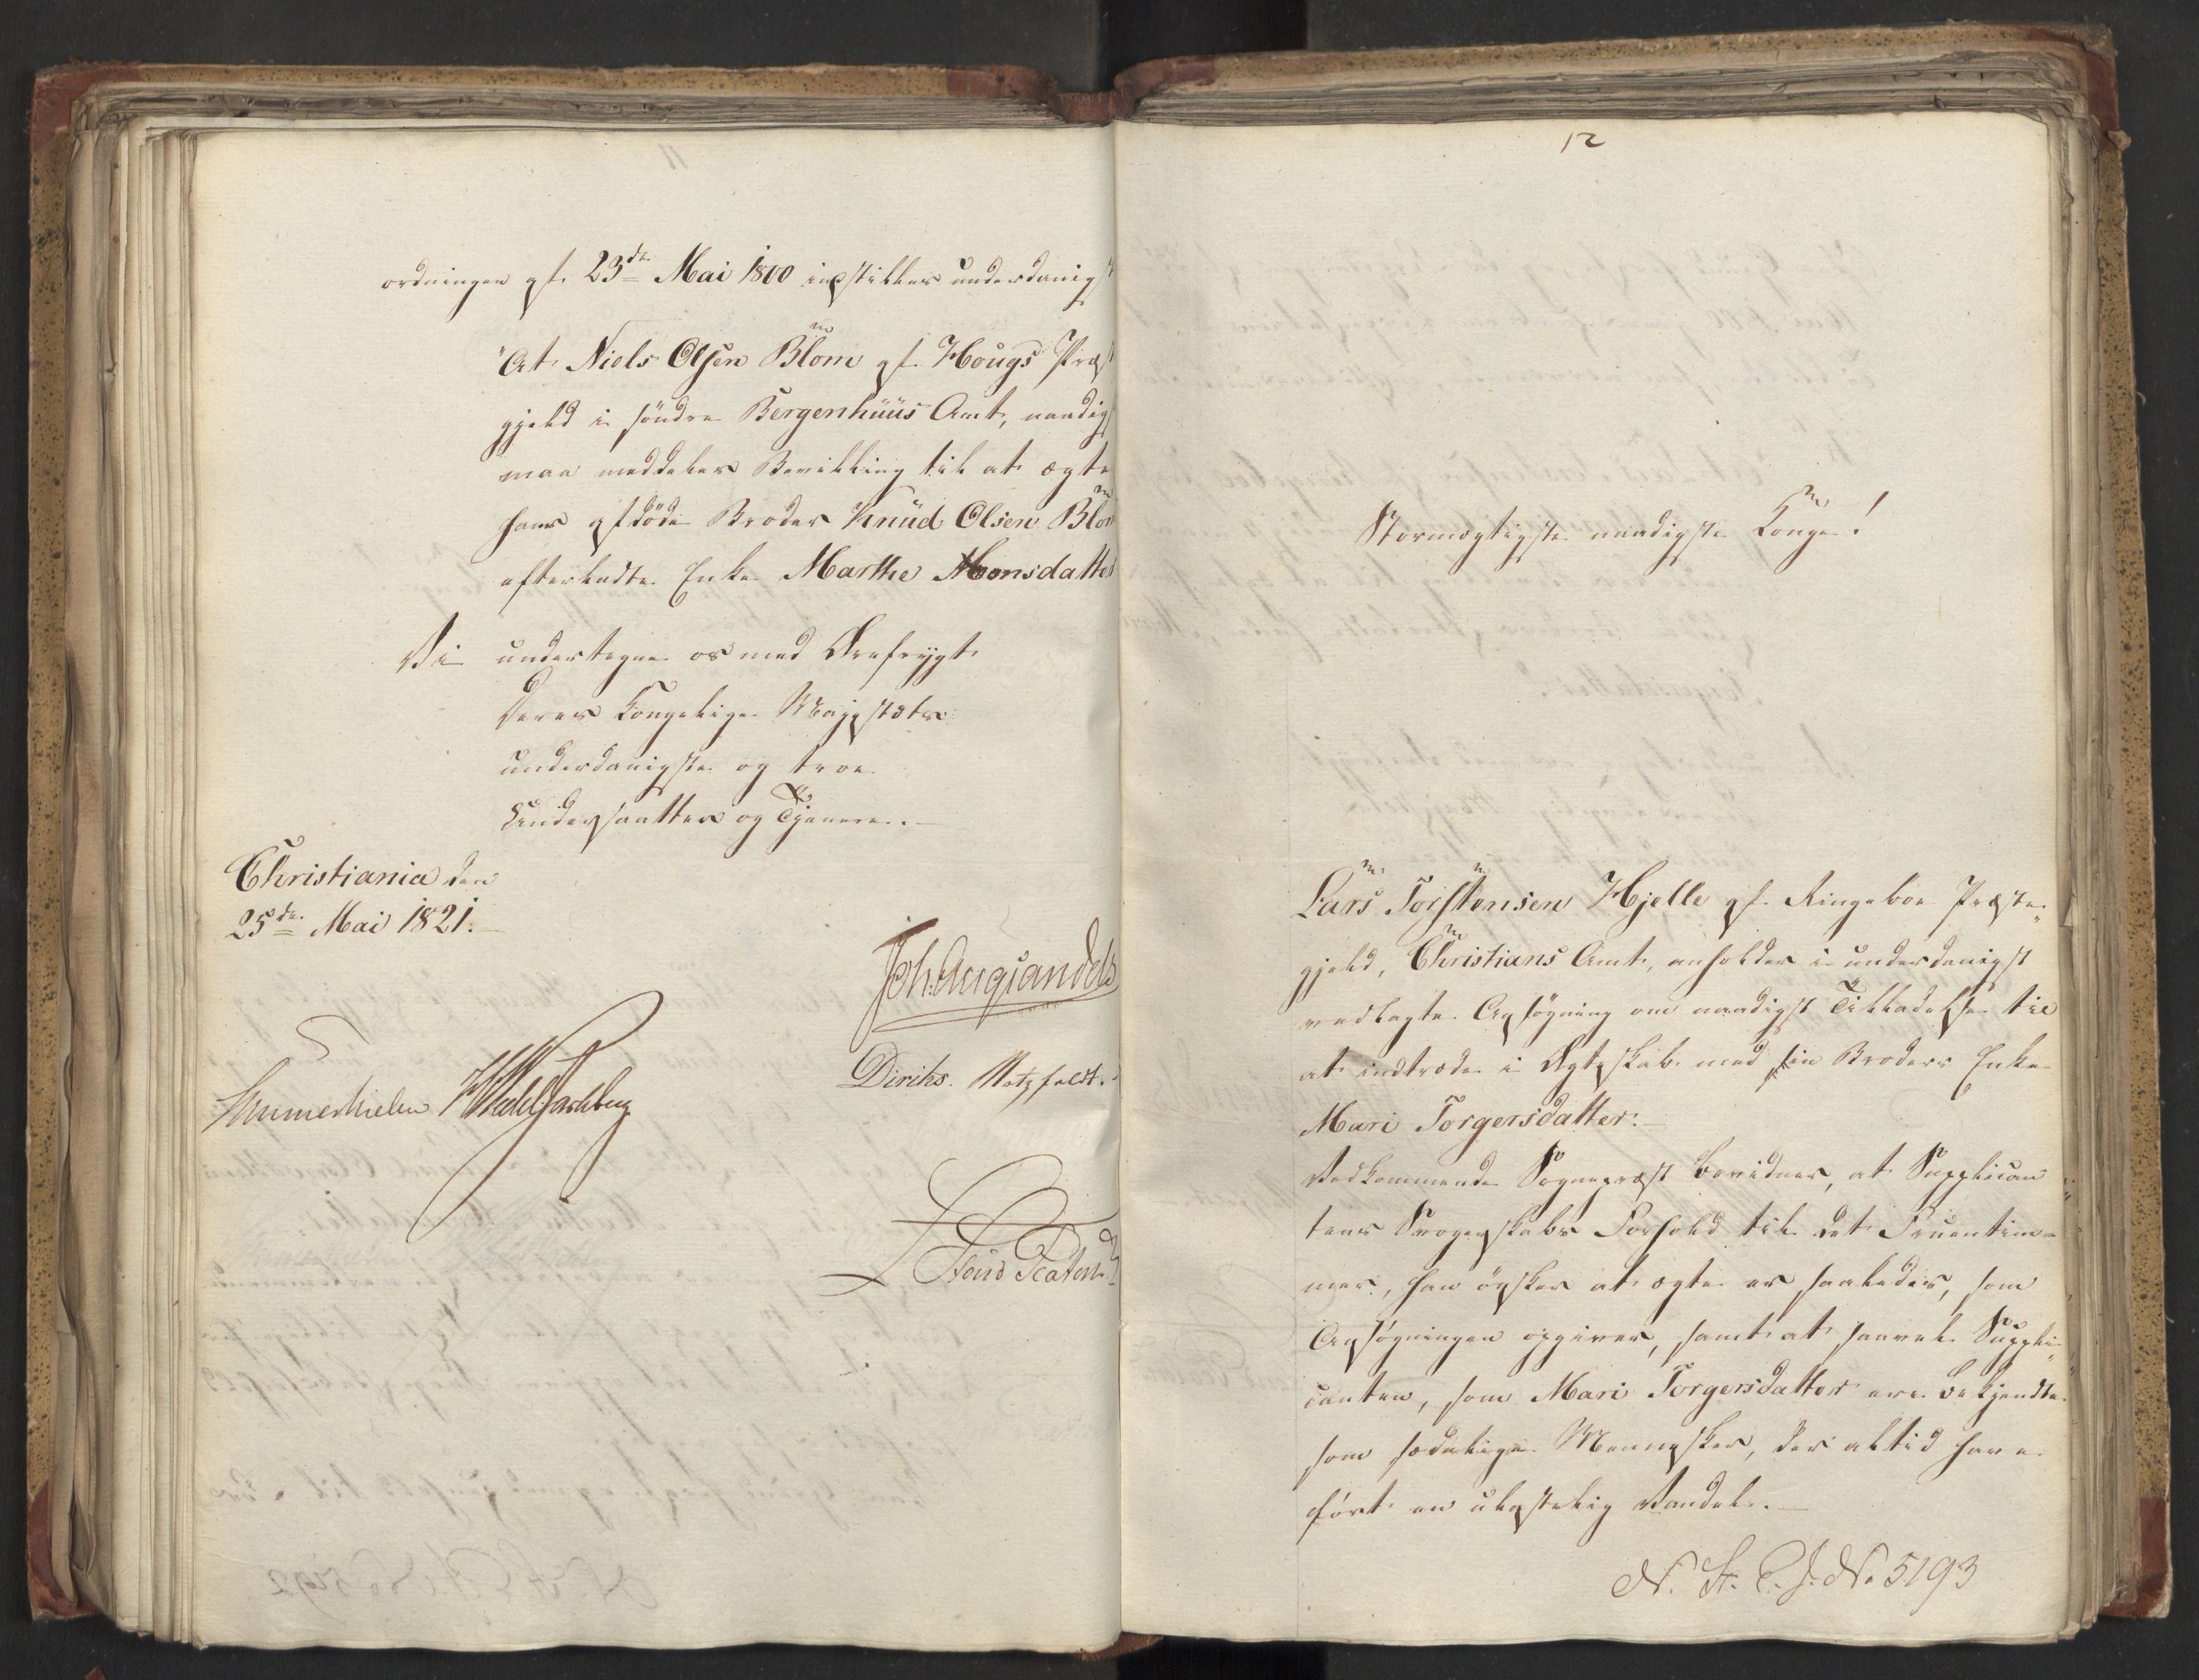 ordningen af 23de Mai 1800 indstilles underdanigst
"At Niels Olsen Blom af Hougs Præste
gjeld i söndre Bergenhuus Amt, naadigst
maa meddeles Bevilling til at ægte
hans afdöde Broder Knud Olsen Blom
efterladte Enke Marthe Monsdatter
Vi undertegne os med Ærefrygt
Deres Kongelige Majestæts
underdanigste og troe
Undersaatter og Tjenere.
Christiania den
25de Mai 1821.
Diriks. Motzfeldt.
Sommerhielm
12
Stormægtigste naadigste Konge!
Lars Torstensen Hjelle af Ringeboe Præste-
gjeld, Christians Amt, anholder i underdanigst
vedlagte Ansögning om naadigst Tilladelse til
at indtræde i Ægteskab med sin Broders Enke
Mari Torgersdatter.
Vedkommende Sognepræst bevidner, at Supplican
tens Svogerskabs Forhold til det Fruentim-
mer, han önsker at ægte er saaledes, som
Ansögningen opgiver, samt at saavel Suppli-
canten, som Mari Torgersdatter ere bekjendte
som sædelige Mennesker, der altid have
fört en ulastelig Vandel.
N. St. C. J. No 5193